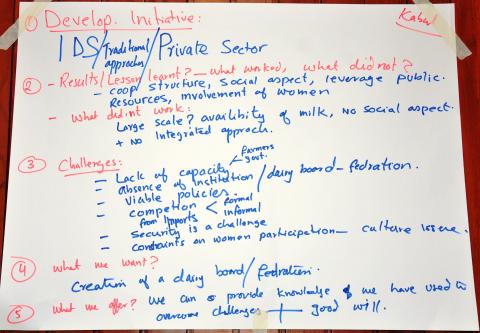 ① Develop. Initiative:
Kabul
IDS/Traditional approaches/Private Sector
② - Results/Lesson learnt? - what worked, what did not?
- coop structure, social aspect, leverage public
Resources, involvement of women
- what didnt work:
Large scale? availibity of milk, No social aspect.
+ no integrated approch.
③ Challenges:
- Lack of capacity < farmers govt.
- absence of institution / dairy board - fedration.
- Viable policies.
- competion < formal informal
from imports
- Security is a challenge
- constraints on women participation - culture issue.
④ what we want?
Creation of a dairy board/fedration.
⑤ what we offer? We can provide knowledge of we have used to
overcome challenges + good will.